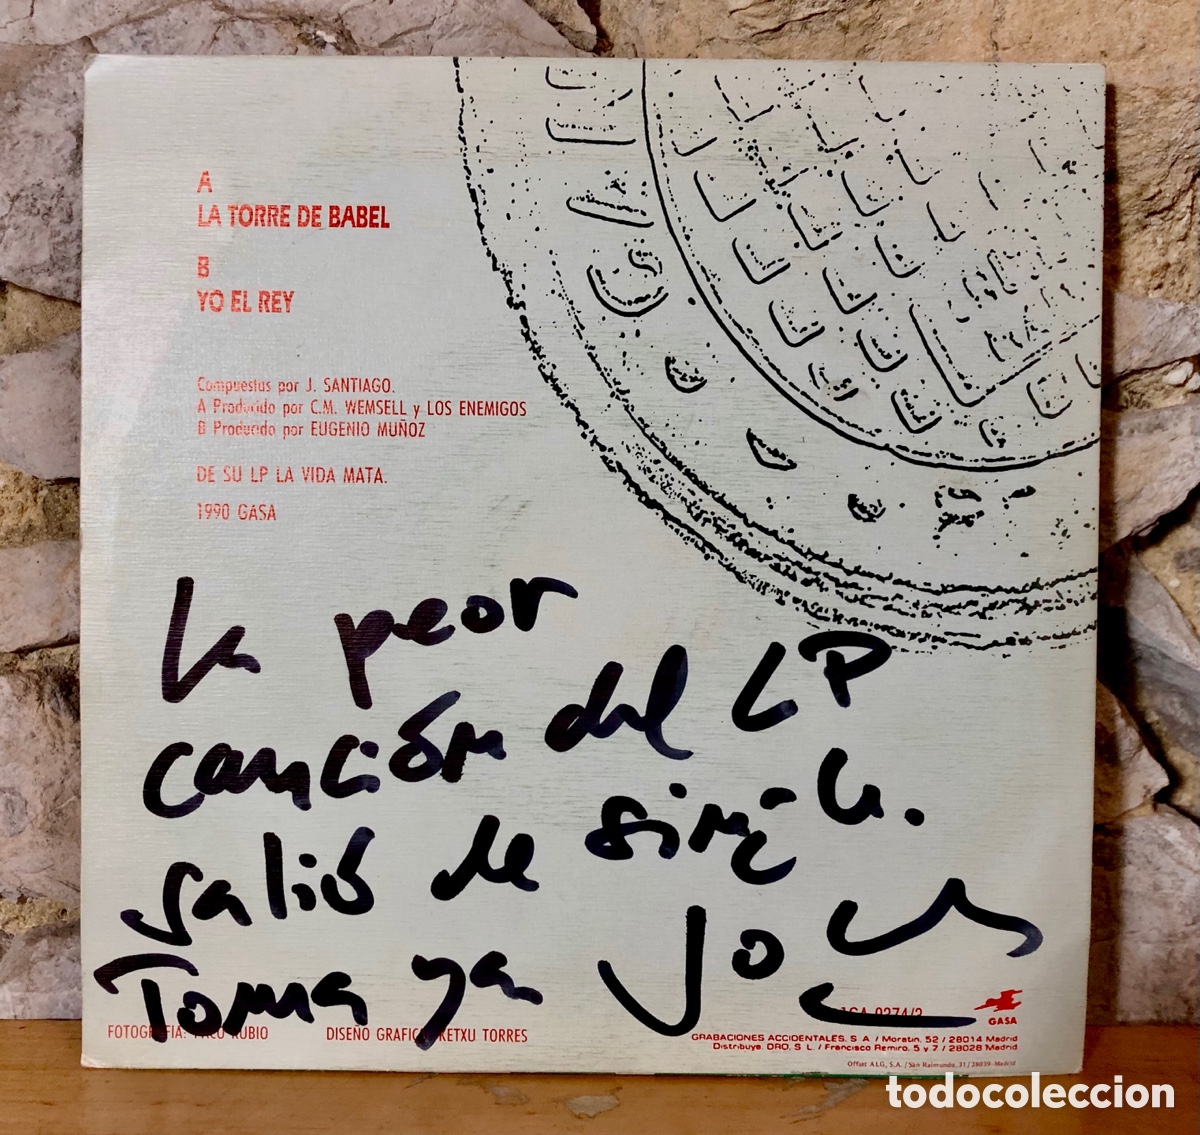 A
LA TORRE DE BABEL
B
YO EL REY
Compuestos por J. SANTIAGO.
A Producido por C.M. WEMSELL y LOS ENEMIGOS
B Producido por EUGENIO MUÑOZ
DE SU LP LA VIDA MATA.
1990 GASA
La peor
canción del LP
salió de single.
Toma ya Jos
FOTOGRAFIA: PACO RUBIO
DISEÑO GRAFICO: KETXU TORRES
GASA
GRABACIONES ACCIDENTALES, S A / Moratin, 52 / 28014 Madrid
Distribuye, DRO, S L. / Francisco Remiro, 5 y 7 / 28028 Madrid
Offset ALG, S.A. / San Raimundo, 31 / 28039-Madrid
todocoleccion